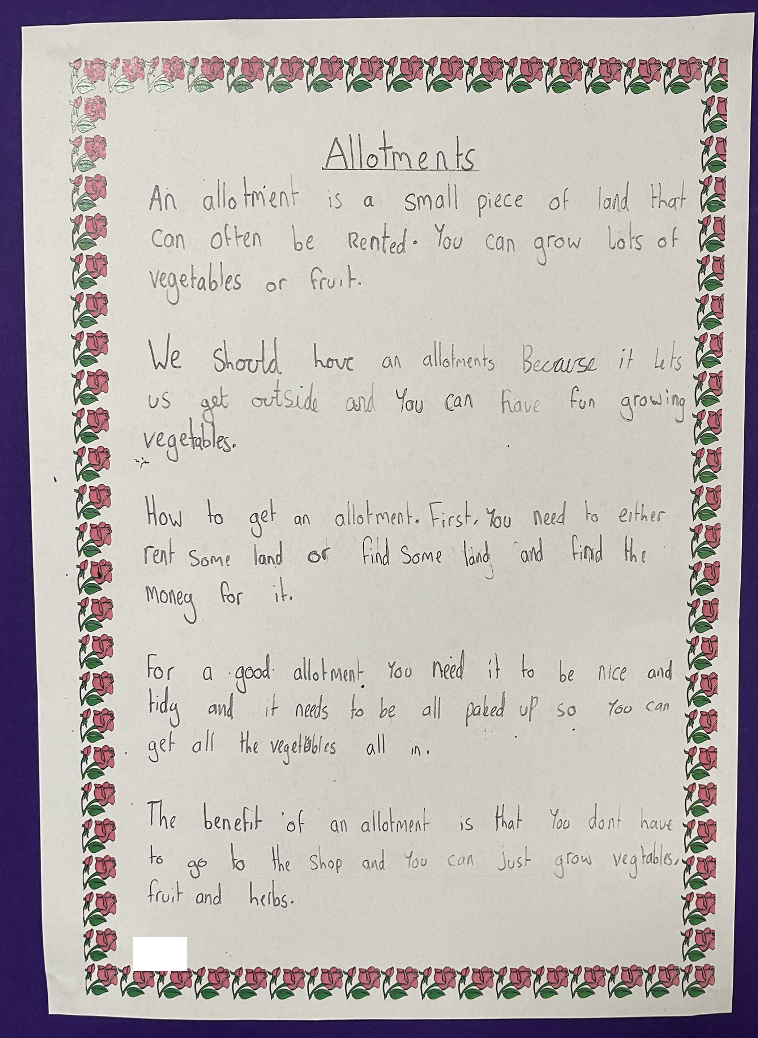 Allotments
An allotment is a small piece of land that
can often be Rented. You can grow lots of
vegetables or fruit.
We should have an allotments Because it lets
us get outside and You can have fun growing
vegetables.
How to get an allotment. First, You need to either
rent some land or find some land and find the
money for it.
For a good allotment You need it to be nice and
tidy and it needs to be all paked up so You can
get all the vegetables all in.
The benefit of an allotment is that You dont have
to go to the shop and You can just grow vegtables,
fruit and herbs.